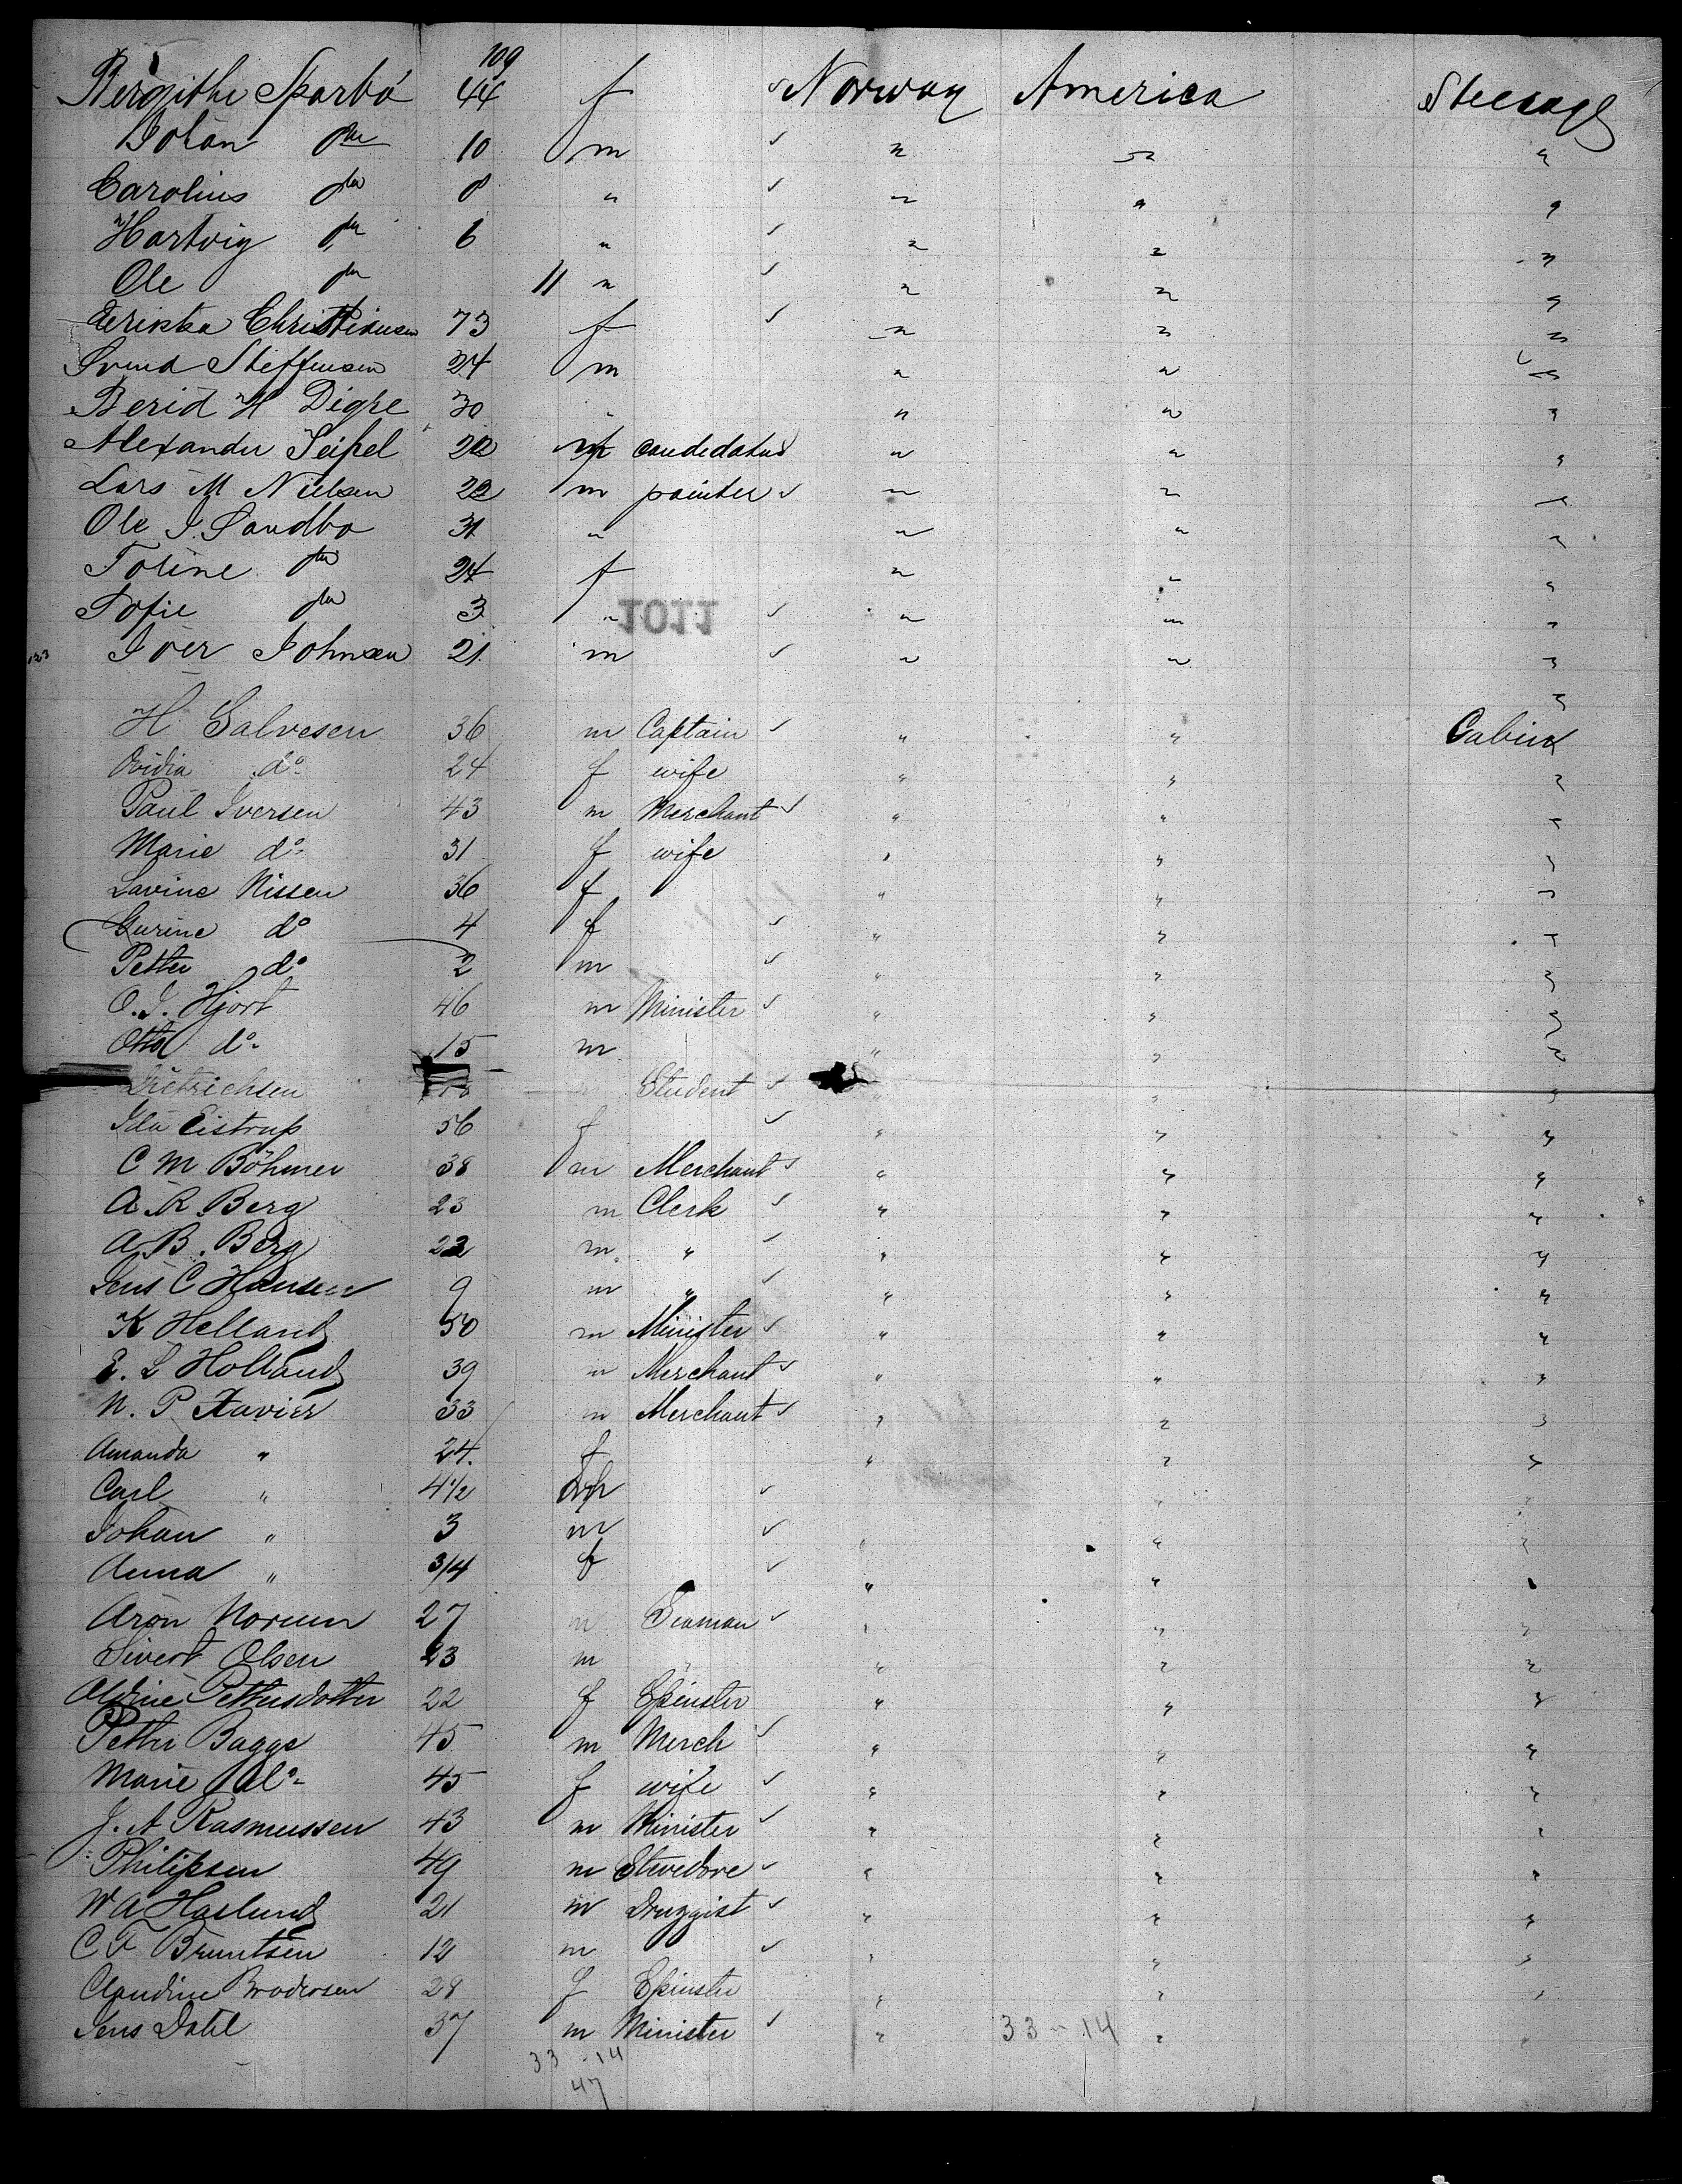 109
Bergithe Sparbö 44 f Norway America Steerage
Johan do 10 m " " "
Carolius do 8 " " " "
Hartvig do 6 " " " "
Ole do 11 " " " "
Christiansen 73 f " " "
Svend Steffensen 24 m " " "
Berid H Digre 30 " " " "
Alexander Seipel 22 m candidatus " " "
Lars M Nielsen 22 m painter " " "
Ole J. Sandbo 31 " " " "
Toline do 24 f " " "
Sofie do 3 " " " "
1011
Iver Johnsen 21 m " " "
"
H Salvesen 36 m Captain " " Cabin
Ovidia do 24 f wife " " "
Paul Iversen 43 m Merchant " " "
Marie do 31 f wife " " "
Lavine Nissen 36 f " " "
Gurine do 4 f " " "
Petter do 2 m " " "
O. J. Hjort 46 m Minister " " "
Otto do 15 m " " "
Dietrichsen Student " " "
Ida Eistrup 56 f " " "
C M Böhmer 38 m Merchant " " "
A. R. Berg 23 m Clerk " " "
A. B. Berg 22 m " " " "
Jens C Hansen 9 m " " " "
K Helland 50 m Minister " " "
E. L Holland 39 m Merchant " " "
N. P Xavier 33 m Merchant " " "
Amanda " 24. f " " "
Carl " 4 1/2 m " " "
Johan " 3 m " " "
Anna " 3/4 f " " "
Aron Norum 27 m Seaman " " "
Sivert Olsen 23 m " " " "
Pettersdotter 22 f Spinster " " "
Petter Bagge 45 m Merch " " "
Marie do 45 f wife " " "
J. A Rasmussen 43 m Minister " " "
Philipsen 49 m Stevedore " " "
W A Haslund 21 m Druggist " " "
C F Bruntsen 12 m " " "
Claudine Brodersen 28 f Spinster " " "
Jens Dahl 37 m Minister " " "
33 - 14
33 - 14
47